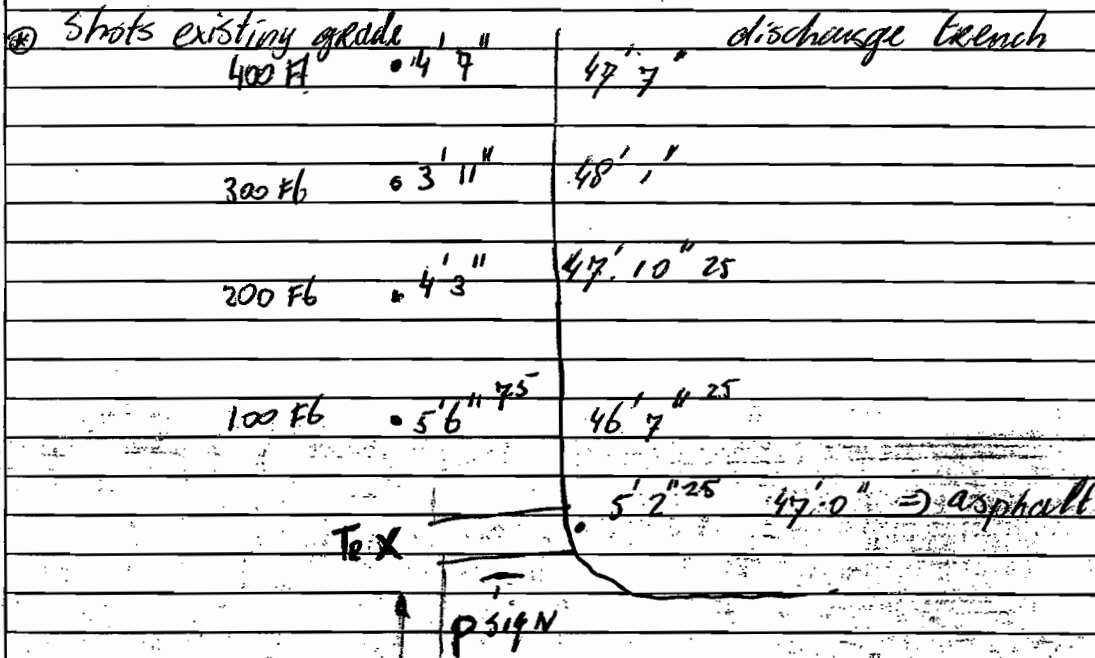 ⊛ Shots existing grade discharge trench
400 Ft • 4' 7" 47' 7"
300 Ft • 3' 11" 48' 1"
200 Ft • 4' 3" 47' 10" 25
100 Ft • 5' 6" 75 46' 7" 25
5' 2" 25 47' 0" => asphalt
X
P sign